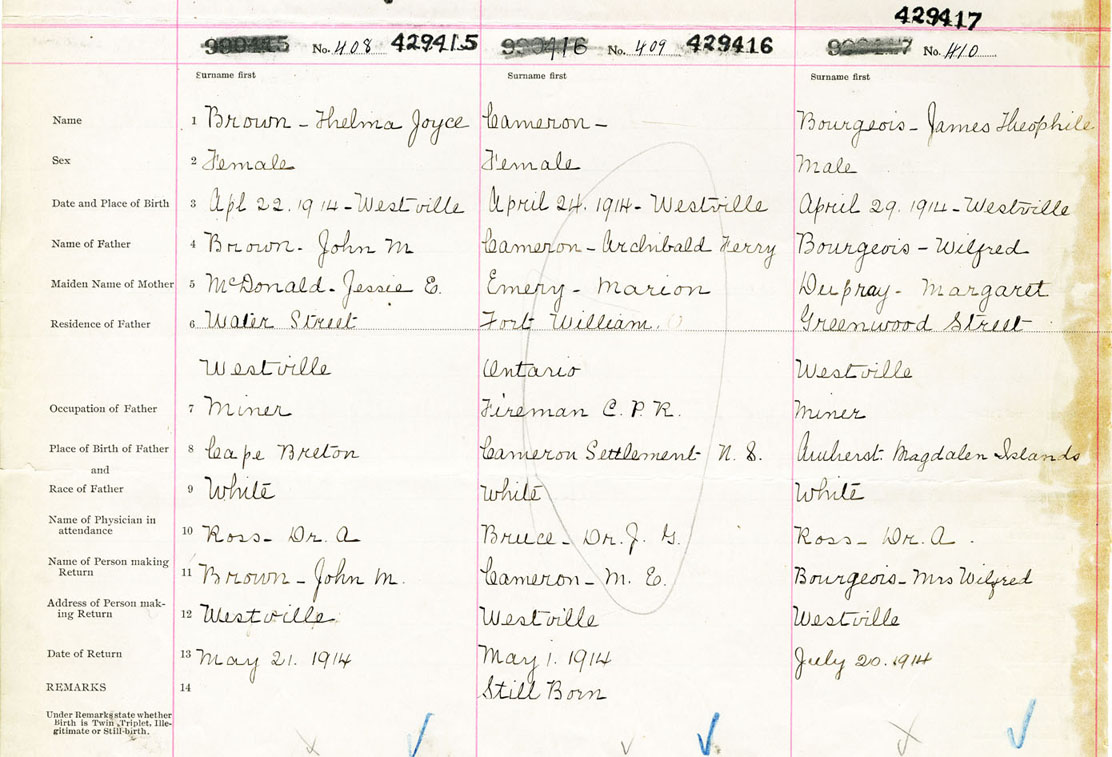 429417
No. 408 429415 No. 409 429416 No. 410
Surname first Surname first Surname first
Name 1 Brown - Thelma Joyce Cameron - Bourgeois - James Theophile
Sex 2 Female Female Male
Date and Place of Birth 3 Apl 22. 1914 - Westville April 24. 1914 - Westville April 29. 1914 - Westville
Name of Father 4 Brown - John M Cameron - Archibald Bourgeois - Wilfred
Maiden Name of Mother 5 McDonald - Jessie E. Emery - Marion Margaret
Residence of Father 6 Water Street Fort William. Greenwood Street
Westville Ontario Westville
Occupation of Father 7 Miner Fireman C. P. R. Miner
Place of Birth of Father 8 Cape Breton Cameron Settlement N. S. Amherst Magdalen Islands
and
Race of Father 9 White White White
Name of Physician in
attendance 10 Ross - Dr. A Bruce - Dr. J. G. Ross - Dr. A.
Name of Person making
Return 11 Brown - John M. Cameron - M. E. Bourgeois - Mrs Wilfred
Address of Person mak-
ing Return 12 Westville Westville Westville
Date of Return 13 May 21. 1914 May 1. 1914 July 20. 1914
REMARKS 14 Still Born
Under Remarks state whether
Birth is Twin, Triplet, Ille-
gitimate or Still-birth.